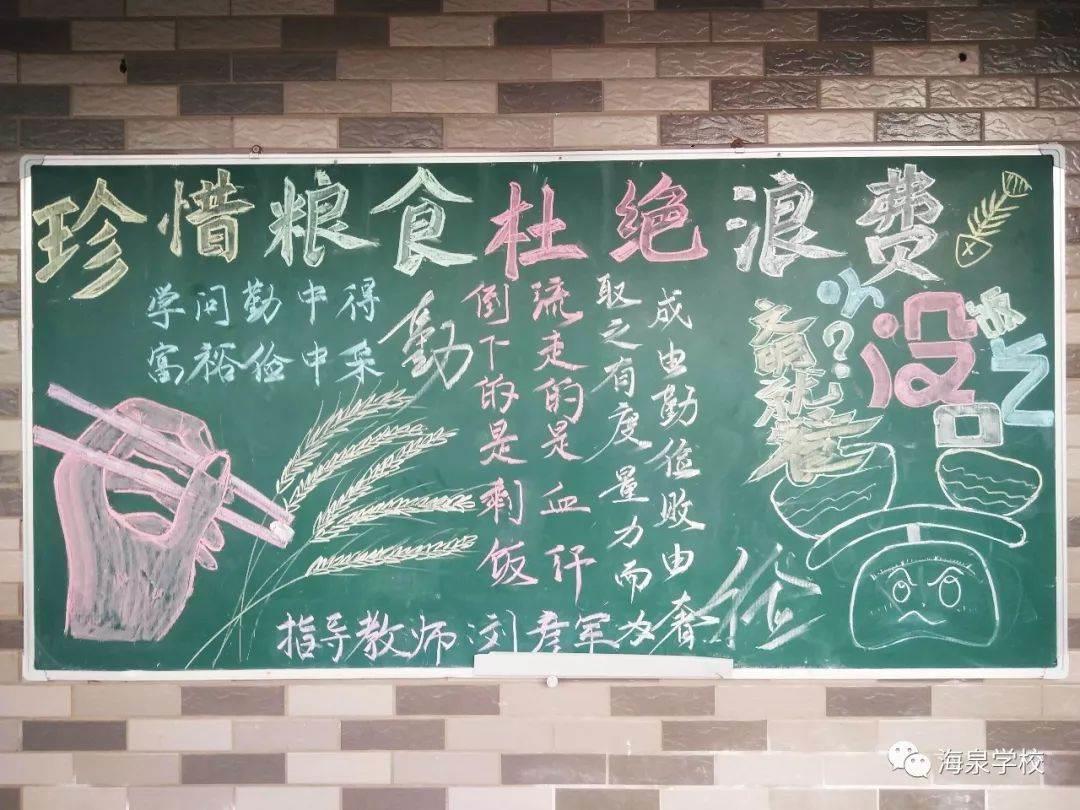 珍惜粮食杜绝浪费
学问勤中得
富裕俭中采
勤
倒下的是剩饭
流走的是血汗
取之有度 量力而为
成由勤俭败由奢
俭
文明就餐
没
指导教师 刘彦军
海泉学校